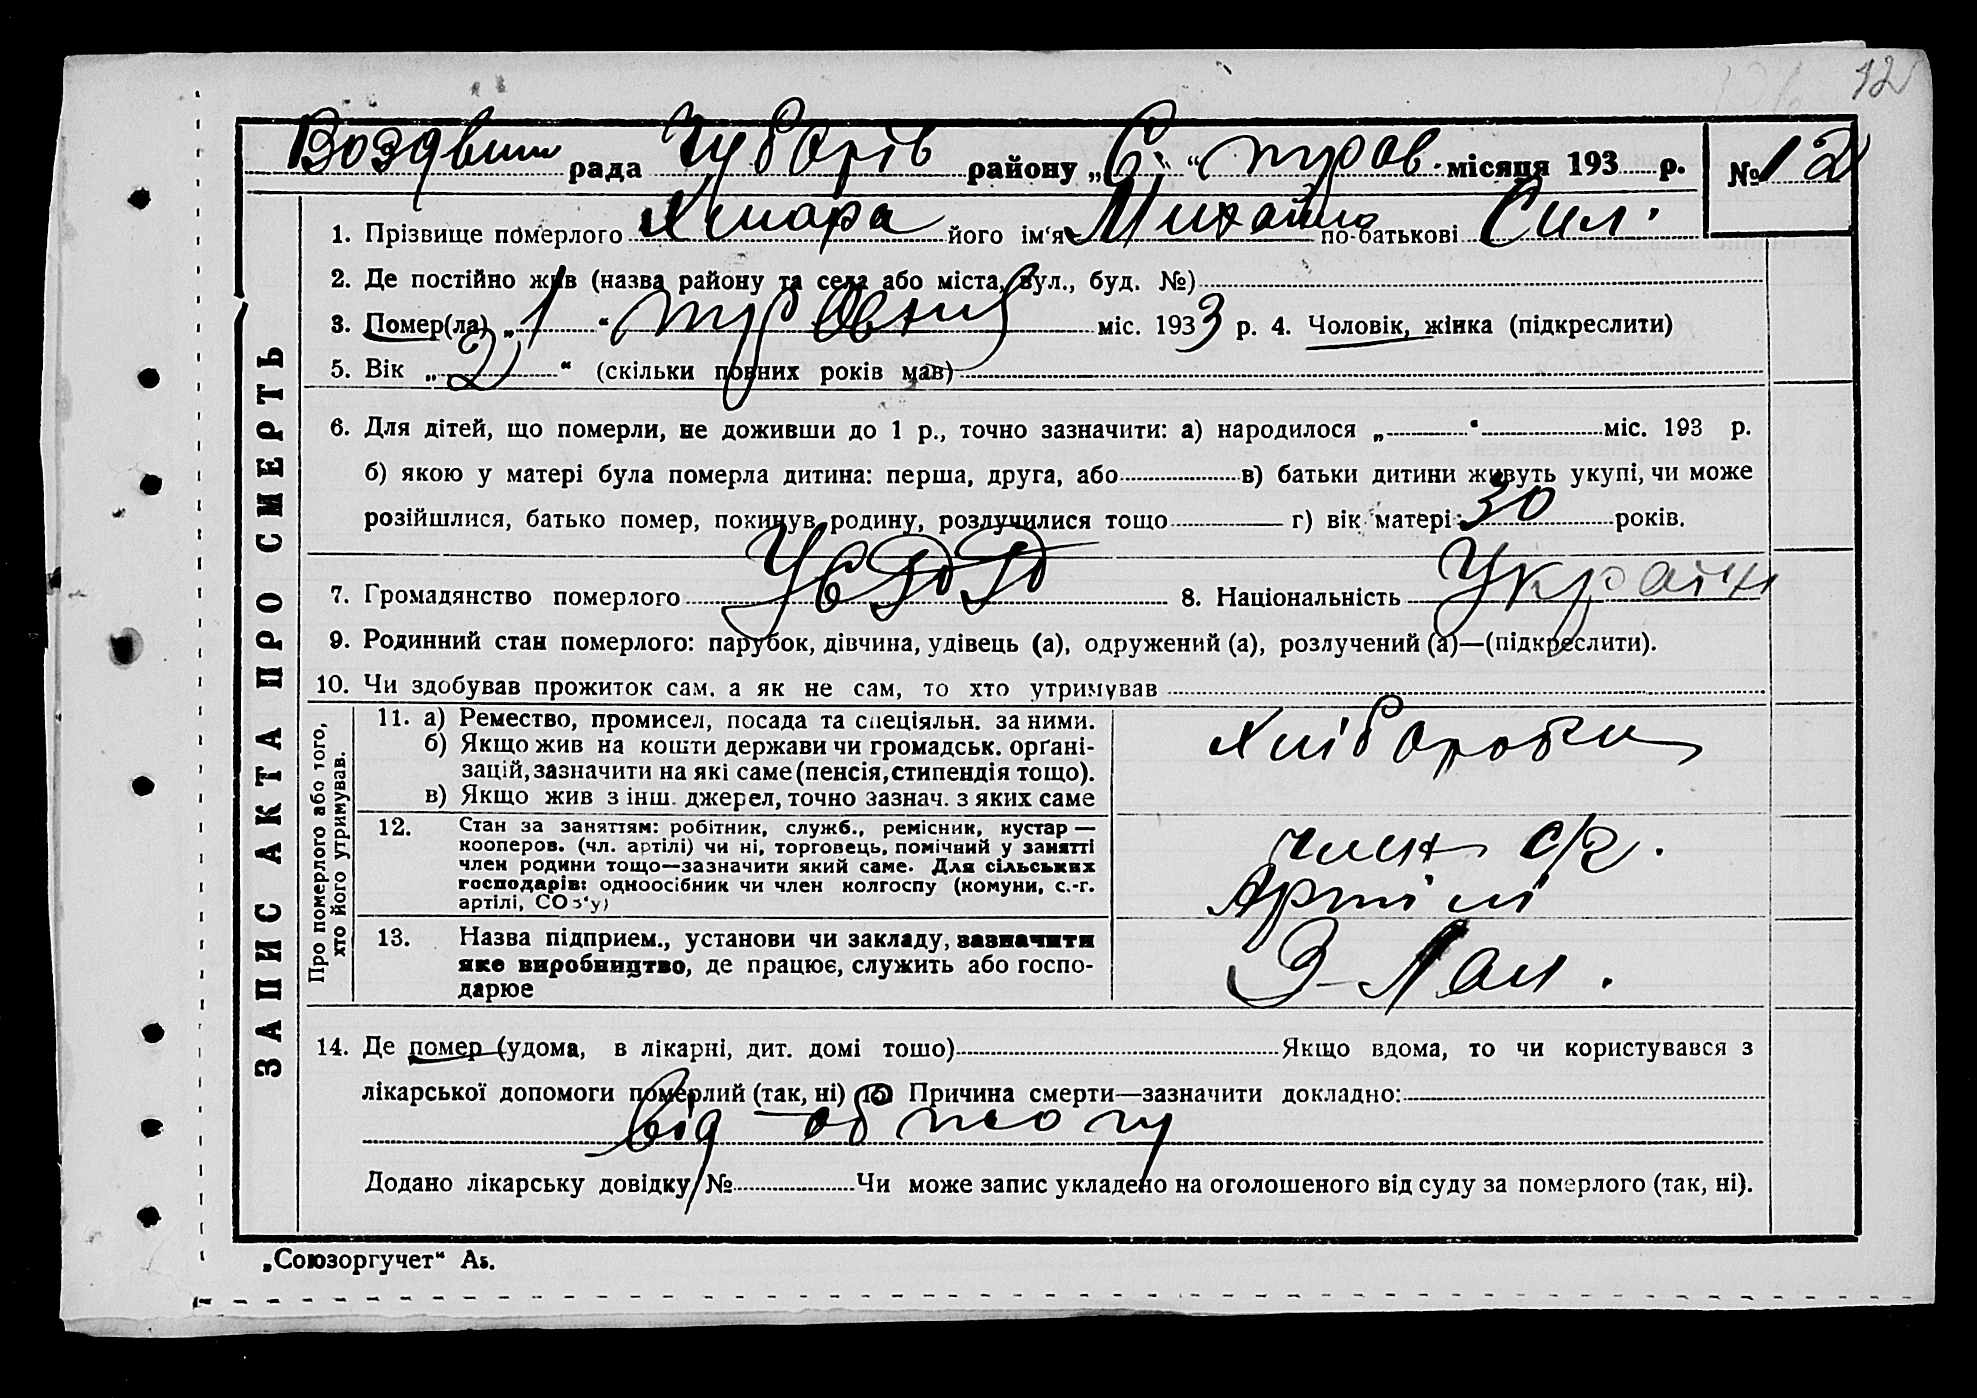 12
Воздвиш рада Чубарів району „6“ туров. місяця 193 р. № 12
ЗАПИС АКТА ПРО СМЕРТЬ
1. Прізвище померлого Хмара його ім'я Михайло по-батькові Сил.
2. Де постійно жив (назва району та села або міста, вул., буд. №)
3. Помер(ла) „1“ міс. 1933 р. 4. Чоловік, жінка (підкреслити)
5. Вік „2“ (скільки повних років мав)
6. Для дітей, що померли, не доживши до 1 р., точно зазначити: а) народилося „ “ міс. 193 р.
б) якою у матері була померла дитина: перша, друга, або в) батьки дитини живуть укупі, чи може
розійшлися, батько помер, покинув родину, розлучилися тощо г) вік матері: 30 років.
7. Громадянство померлого УСРР 8. Національність Україн
9. Родинний стан померлого: парубок, дівчина, удівець (а), одружений (а), розлучений (а)—(підкреслити).
10. Чи здобував прожиток сам, а як не сам, то хто утримував
Про померлого або того, хто його утримував.
11. а) Ремество, промисел, посада та спеціяльн. за ними.
б) Якщо жив на кошти держави чи громадськ. орґані-
зацій, зазначити на які саме (пенсія, стипендія тощо).
в) Якщо жив з інш. джерел, точно зазнач. з яких саме
Хлібороби
12. Стан за заняттям: робітник, служб., ремісник, кустар —
кооперов. (чл. артілі) чи ні, торговець, помічний у занятті
член родини тощо—зазначити який саме. Для сільських
господарів: одноосібник чи член колгоспу (комуни, с.-г.
артілі, СОЗ'у)
член с/г.
Артілі
13. Назва підприєм., установи чи закладу, зазначити
яке виробництво, де працює, служить або госпо-
дарює
14. Де помер (удома, в лікарні, дит. домі тошо) Якщо вдома, то чи користувався з
лікарської допомоги померлий (так, ні) 15. Причина смерти—зазначити докладно:
від
Додано лікарську довідку № Чи може запис укладено на оголошеного від суду за померлого (так, ні).
„Союзоргучет“ А5.